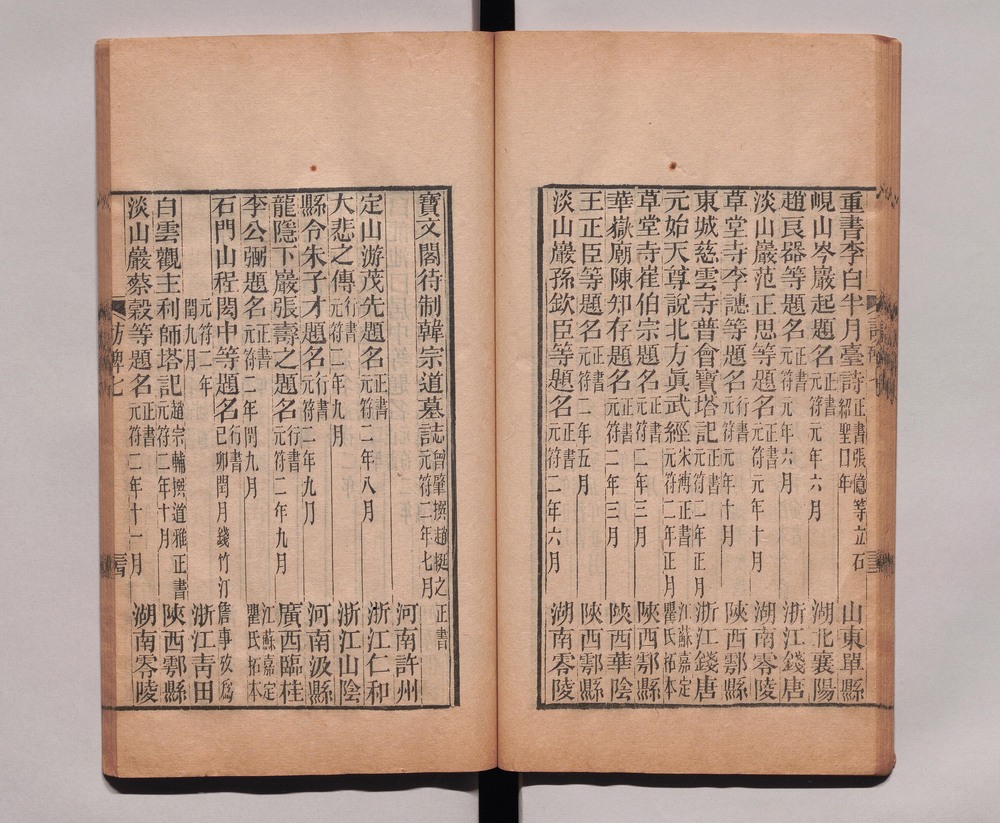 重書李白半月臺詩正書張億等立石紹聖口年 山東單縣
峴山岑巖起題名正書元符元年六月 湖北襄陽
趙㒭器等題名正書元符元年六月 浙江錢唐
淡山巖范正思等題名正書元符元年十月 湖南零陵
草堂寺李譓等題名行書元符元年十月 陝西鄠縣
東城慈雲寺普會寶塔記正書元符二年正月 浙江錢唐
元始天尊說北方眞武經宋溥正書元符二年正月 江蘇嘉定瞿氏拓本
草堂寺崔伯宗題名正書元符二年三月 陝西鄠縣
華嶽廟陳知存題名正書元符二年三月 陝西華陰
王正臣等題名正書元符二年五月 陝西鄠縣
淡山巖孫欽臣等題名正書元符二年六月 湖南零陵
寶文閣待制韓宗道墓誌曾肇撰趙挺之正書元符二年七月 河南許州
定山游茂先題名正書元符二年八月 浙江仁和
大悲之傳行書元符二年九月 浙江山陰
縣令朱子才題名行書元符二年九月 河南汲縣
龍隱下巖張壽之題名行書元符二年九月 廣西臨桂
李公弼題名正書元符二年閏九月 江蘇嘉定瞿氏拓本
石門山程閎中等題名行書己卯閏月錢竹汀詹事攷爲
元符二年閏九月 浙江靑田
白雲觀主利師塔記趙宗輔撰道雅正書元符二年十月 陝西鄠縣
淡山巖蔡縠等題名正書元符二年十一月 湖南零陵
訪碑七